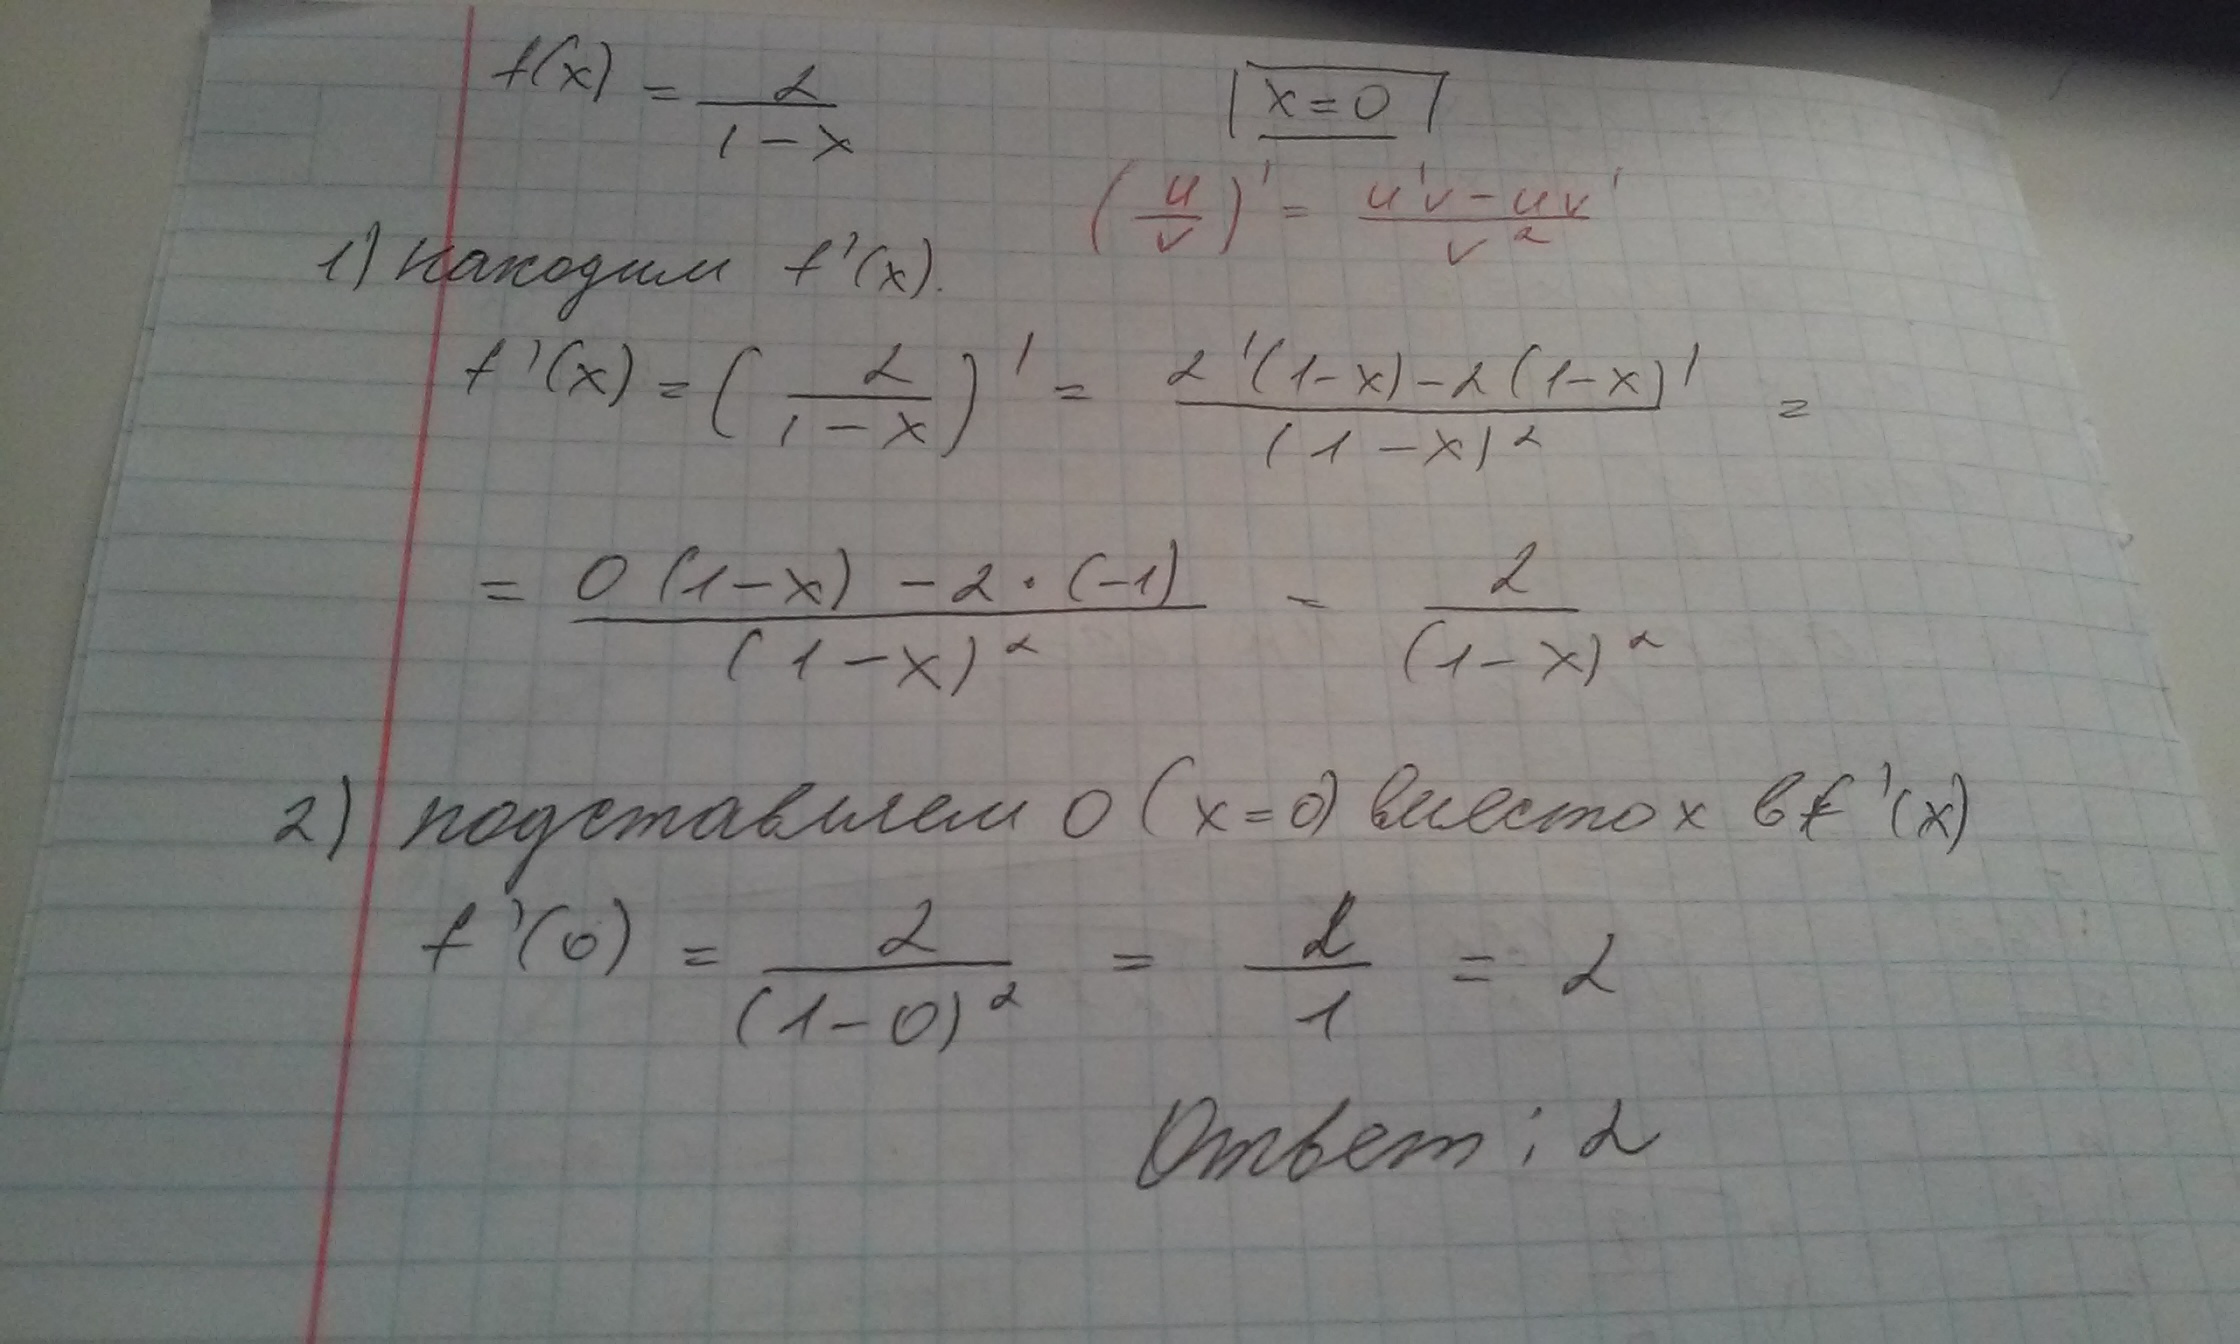 f(x) = 2/(1-x)    x=0
(u/v)' = (u'v-uv')/v²
1) находим f'(x).
f'(x) = (2/(1-x))' = (2'(1-x)-2(1-x)')/(1-x)² =
= (0(1-x) -2·(-1))/(1-x)² = 2/(1-x)²
2) подставляем 0 (x=0) вместо x в f'(x)
f'(0) = 2/(1-0)² = 2/1 = 2
Ответ: 2